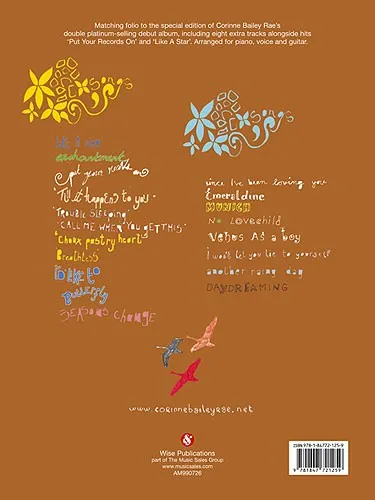 Matching folio to the special edition of Corinne Bailey Rae's
double platinum-selling debut album, including eight extra tracks alongside hits
'Put Your Records On' and 'Like A Star'. Arranged for piano, voice and guitar.
songs
songs
like a star
enchantment
put your records on
'Till it happens to you'
'TROUBLE SLEEPING'
'CALL ME WHEN YOU GET THIS'
'choux pastry heart'
Breathless
I'd like to
Butterfly
SEASONS CHANGE
since I've been loving you
Emeraldine
MUNICH
NO Lovechild
Venus As a boy
I won't let you lie to yourself
another rainy day
DAYDREAMING
www.corinnebaileyrae.net
Wise Publications
part of The Music Sales Group
www.musicsales.com
AM990726
ISBN 978-1-84772-125-9
9 781847 721259